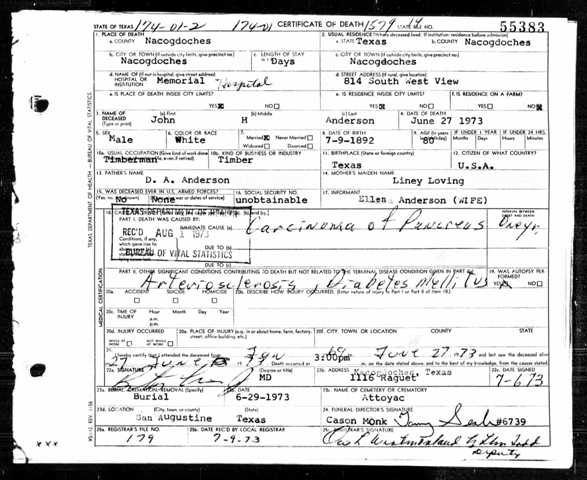 STATE OF TEXAS 174-01-2 174-01 CERTIFICATE OF DEATH 1579 STATE FILE NO. 55383
1. PLACE OF DEATH
a. COUNTY Nacogdoches
2. USUAL RESIDENCE (Where deceased lived. If institution: residence before admission)
a. STATE Texas b. COUNTY Nacogdoches
b. CITY OR TOWN (If outside city limits, give precinct no.) Nacogdoches
c. LENGTH OF STAY Days
c. CITY OR TOWN (If outside city limits, give precinct no.) Nacogdoches
d. NAME OF (If not in hospital, give street address) HOSPITAL OR INSTITUTION Memorial Hospital
d. STREET ADDRESS (If rural, give location) 814 South West View
e. IS PLACE OF DEATH INSIDE CITY LIMITS? YES NO
e. IS RESIDENCE INSIDE CITY LIMITS? YES NO
f. IS RESIDENCE ON A FARM? YES NO
3. NAME OF DECEASED (Type or print) (a) First John (b) Middle H (c) Last Anderson
4. DATE OF DEATH June 27 1973
5. SEX Male
6. COLOR OR RACE White
7. Married Never Married Widowed Divorced
8. DATE OF BIRTH 7-9-1892
9. AGE 80
IF UNDER 1 YEAR IF UNDER 24 HRS.
10a. USUAL OCCUPATION Timberman
10b. KIND OF BUSINESS OR INDUSTRY Timber
11. BIRTHPLACE (State or foreign country) Texas
12. CITIZEN OF WHAT COUNTRY? U.S.A.
13. FATHER'S NAME D. A. Anderson
14. MOTHER'S MAIDEN NAME Liney Loving
15. WAS DECEASED EVER IN U.S. ARMED FORCES? No None
16. SOCIAL SECURITY NO. unobtainable
17. INFORMANT Ellen Anderson (WIFE)
PART I. DEATH WAS CAUSED BY:
IMMEDIATE CAUSE (a) Carcinoma of Pancreas
INTERVAL BETWEEN ONSET AND DEATH
TEXAS DEPARTMENT OF HEALTH
REC'D AUG 1 1973
BUREAU OF VITAL STATISTICS
DUE TO (b)
DUE TO (c)
PART II. OTHER SIGNIFICANT CONDITIONS CONTRIBUTING TO DEATH BUT NOT RELATED TO THE TERMINAL DISEASE CONDITION GIVEN IN PART I
Arteriosclerosis, Diabetes Mellitus
19. WAS AUTOPSY PERFORMED? YES NO
20a. ACCIDENT SUICIDE HOMICIDE
20b. DESCRIBE HOW INJURY OCCURRED. (Enter nature of injury in Part I or Part II of item 18.)
20c. TIME OF INJURY Hour a.m. p.m. Month Day Year
20d. INJURY OCCURRED
20e. PLACE OF INJURY (e.g. in or about home, farm, factory, street, office building, etc.)
20f. CITY, TOWN, OR LOCATION COUNTY STATE
21. I hereby certify that I attended the deceased from
June 27 73 and last saw the deceased alive
27 June 3:00pm m. on the date stated above, and to the best of my knowledge, from the causes stated.
22a. SIGNATURE (Degree or title) MD
22b. ADDRESS Nacogdoches, Texas 1116 Raguet
22c. DATE SIGNED 7-6 73
23a. BURIAL, CREMATION, REMOVAL (Specify) Burial
23b. DATE 6-29-1973
23c. NAME OF CEMETERY OR CREMATORY Attoyac
23d. LOCATION (City, town, or county) (State) San Augustine Texas
24. FUNERAL DIRECTOR'S SIGNATURE Cason Monk #6739
25a. REGISTRAR'S FILE NO. 179
25b. DATE REC'D BY LOCAL REGISTRAR 7-9-73
25c. REGISTRAR'S SIGNATURE
Deputy
TEXAS DEPARTMENT OF HEALTH - BUREAU OF VITAL STATISTICS
MEDICAL CERTIFICATION
xxx